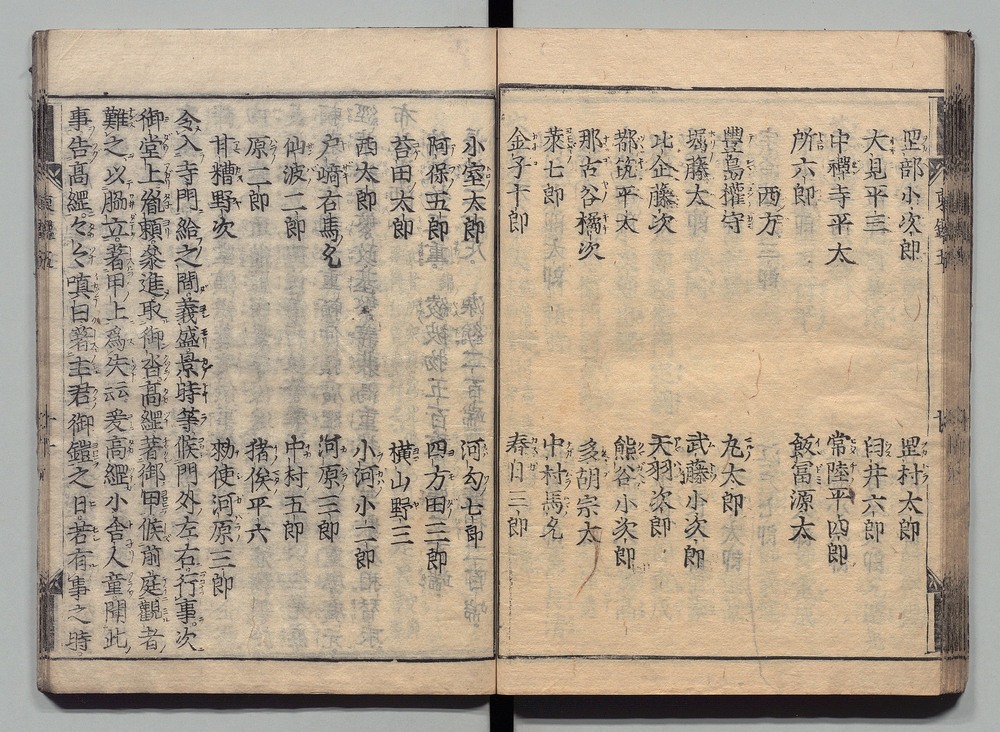 罡部小次郎　罡村太郎
大見平三　臼井六郎
中禪寺平太　常陸平四郎
所六郎　飯冨源太
西方
豊島權守　九太郎
堀藤太　武藤小次郎
比企藤次　天羽次郎
都筑平太　熊谷小次郎
那古谷橘次　多胡宗太
莱七郎　中村馬允
金子十郎　春日三郎
小室太郎　河勾七郎
阿保五郎　四方田三郎
苔田太郎　横山野三
西太郎　小河小二郎
戸崎右馬允　河原三郎
仙波二郎　中村五郎
原二郎　猪俣平六
甘糟野次　勅使河原三郎
令入寺門給之間義盛景時等候門外左右行事次
御堂上頼参進取御沓高經著御甲候前庭觀者
難之以脇立著甲上爲失云云爰高經小舎人童聞此
事告高經々々嗔曰著主君御鎧之日若有事之時